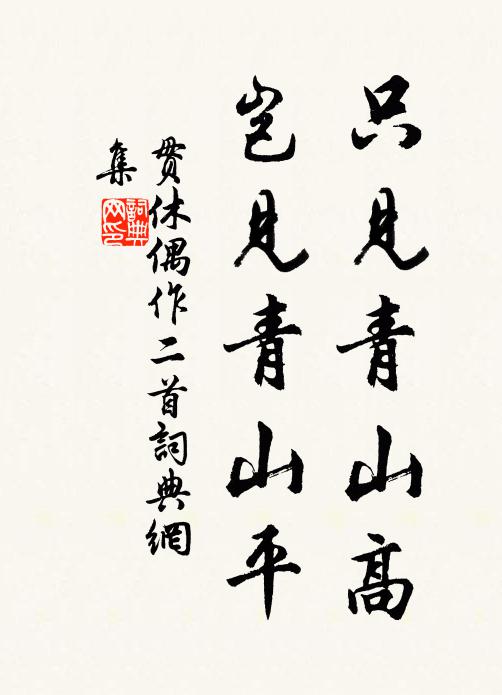 只見青山高
豈見青山平
貫休偶作二首詞典網
集
詞典網印